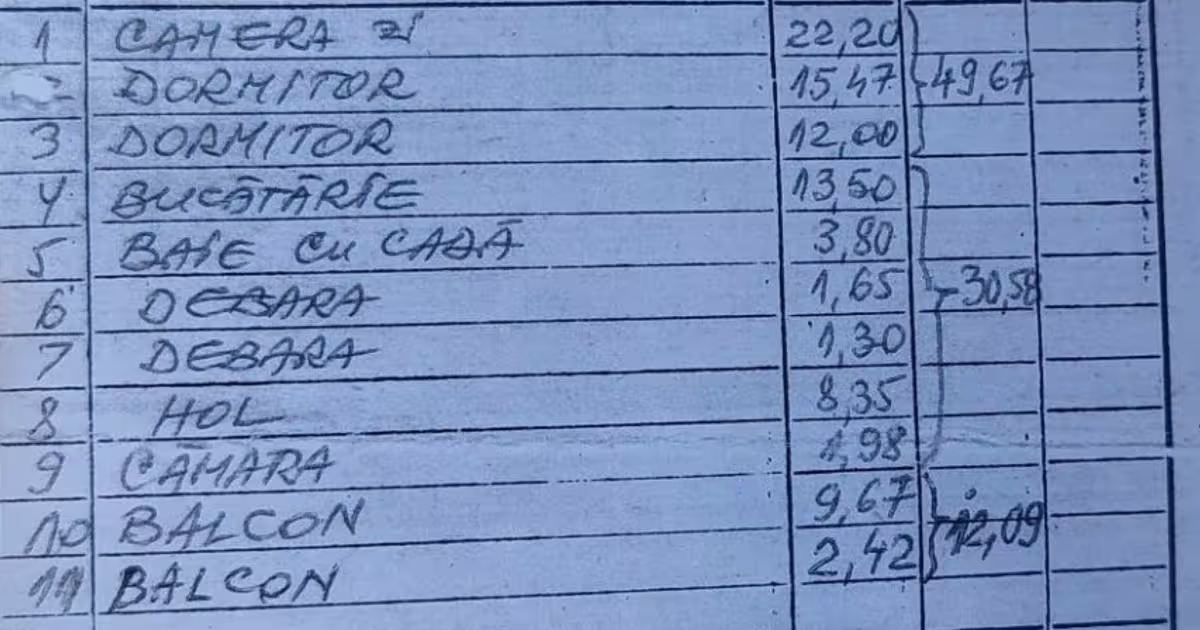 1 CAMERA ZI 22,20
2 DORMITOR 15,47 49,67
3 DORMITOR 12,00
4 BUCĂTĂRIE 13,50
5 BAIE CU CADĂ 3,80
6 DEBARA 1,65 30,58
7 DEBARA 1,30
8 HOL 8,35
9 CĂMARA 1,98
10 BALCON 9,67 12,09
11 BALCON 2,42